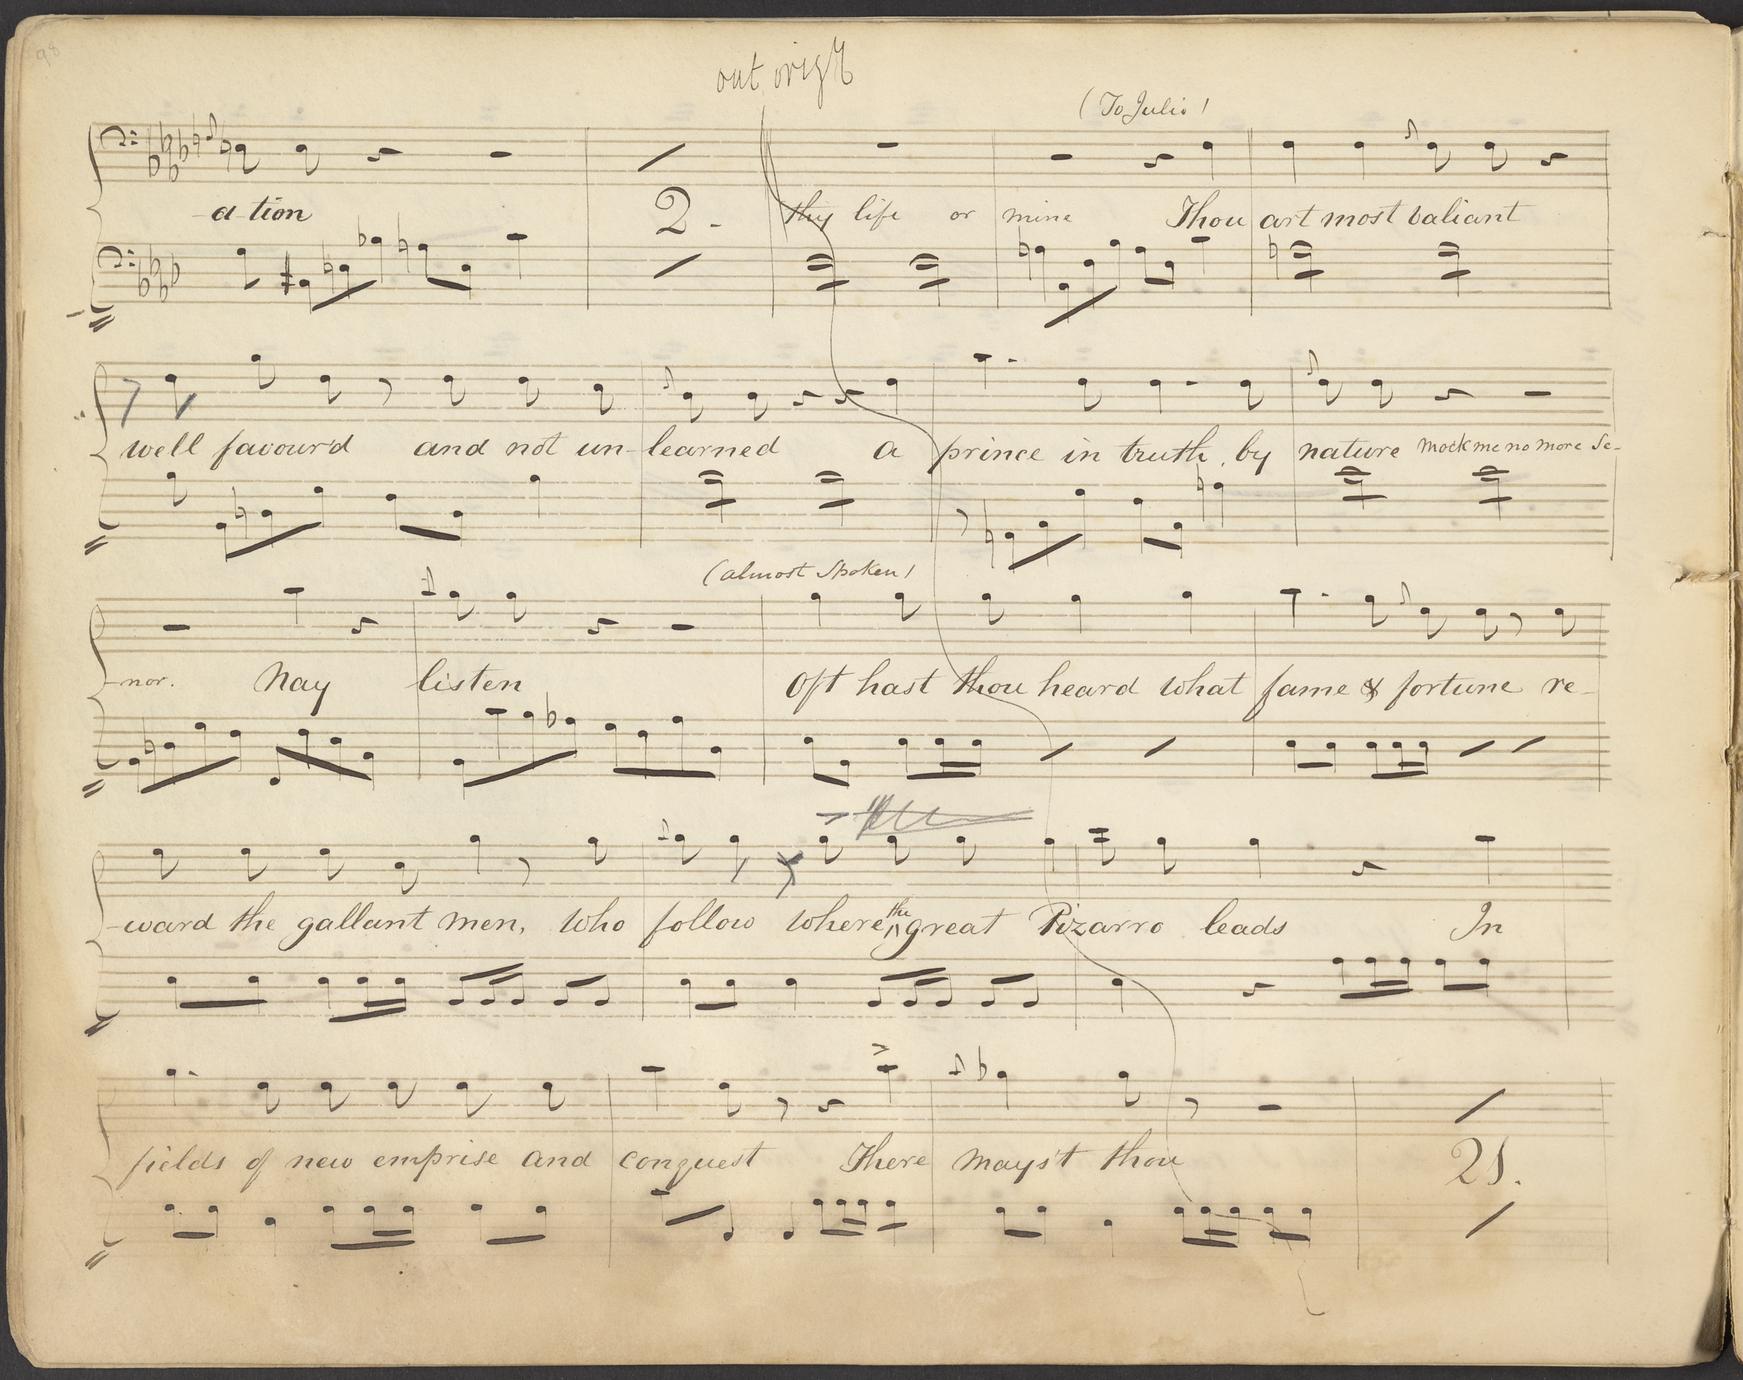 98
out orig
(To Julio)
-a-tion 2. thy life or mine Thou art most valiant
well favour'd and not un-learned a prince in truth, by nature mock me no more Se-
(almost Spoken)
-nor. Nay listen Oft hast thou heard what fame & fortune re-
-ward the gallant men, who follow where the great Pizarro leads In
fields of new emprise and conquest There mays't thou 21.